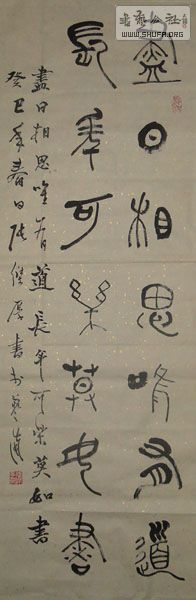 書藝公社
WWW.SHUFA.ORG
盡日相思唯有道
長年可樂莫如書
盡日相思唯有道長年可樂莫如書
癸巳年春日張厚書於